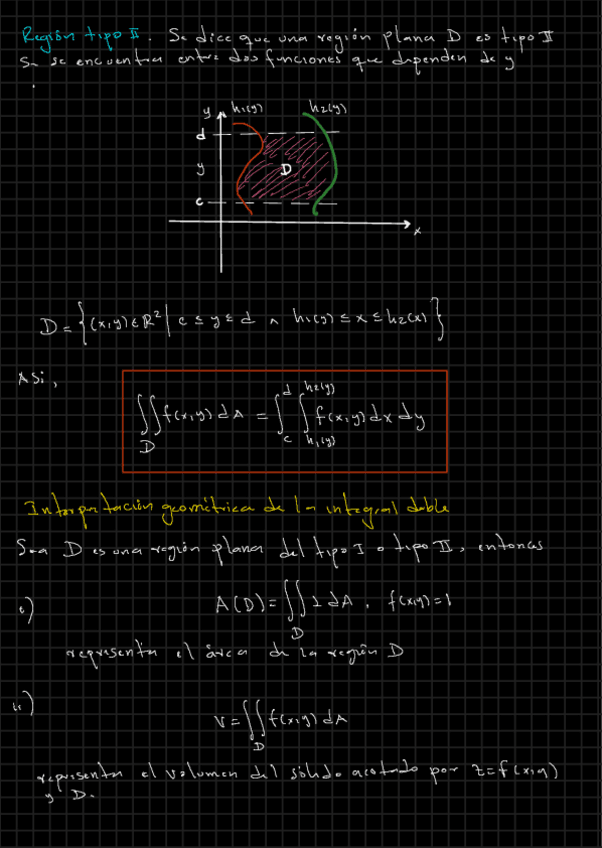 Región tipo II. Se dice que una región plana D es tipo II
Si se encuentra entre dos funciones que dependen de y
.
y h₁(y) h₂(y)
d
y D
c
x
D = {(x,y) ∈ R² | c ≤ y ≤ d ∧ h₁(y) ≤ x ≤ h₂(x)}
Asi,
∬_D f(x,y) dA = ∫_c^d ∫_{h₁(y)}^{h₂(y)} f(x,y) dx dy
Interpretación geométrica de la integral doble
Sea D es una región plana del tipo I o tipo II, entonces
i) A(D) = ∬_D 1 dA, f(x,y)=1
representa el área de la región D
ii) V = ∬_D f(x,y) dA
representa el volumen del sólido acotado por z=f(x,y)
y D.